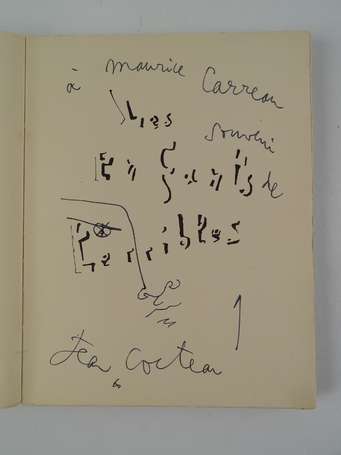 à Maurice Carreau
Les
souvenir
Enfants de
Terribles
Jean Cocteau